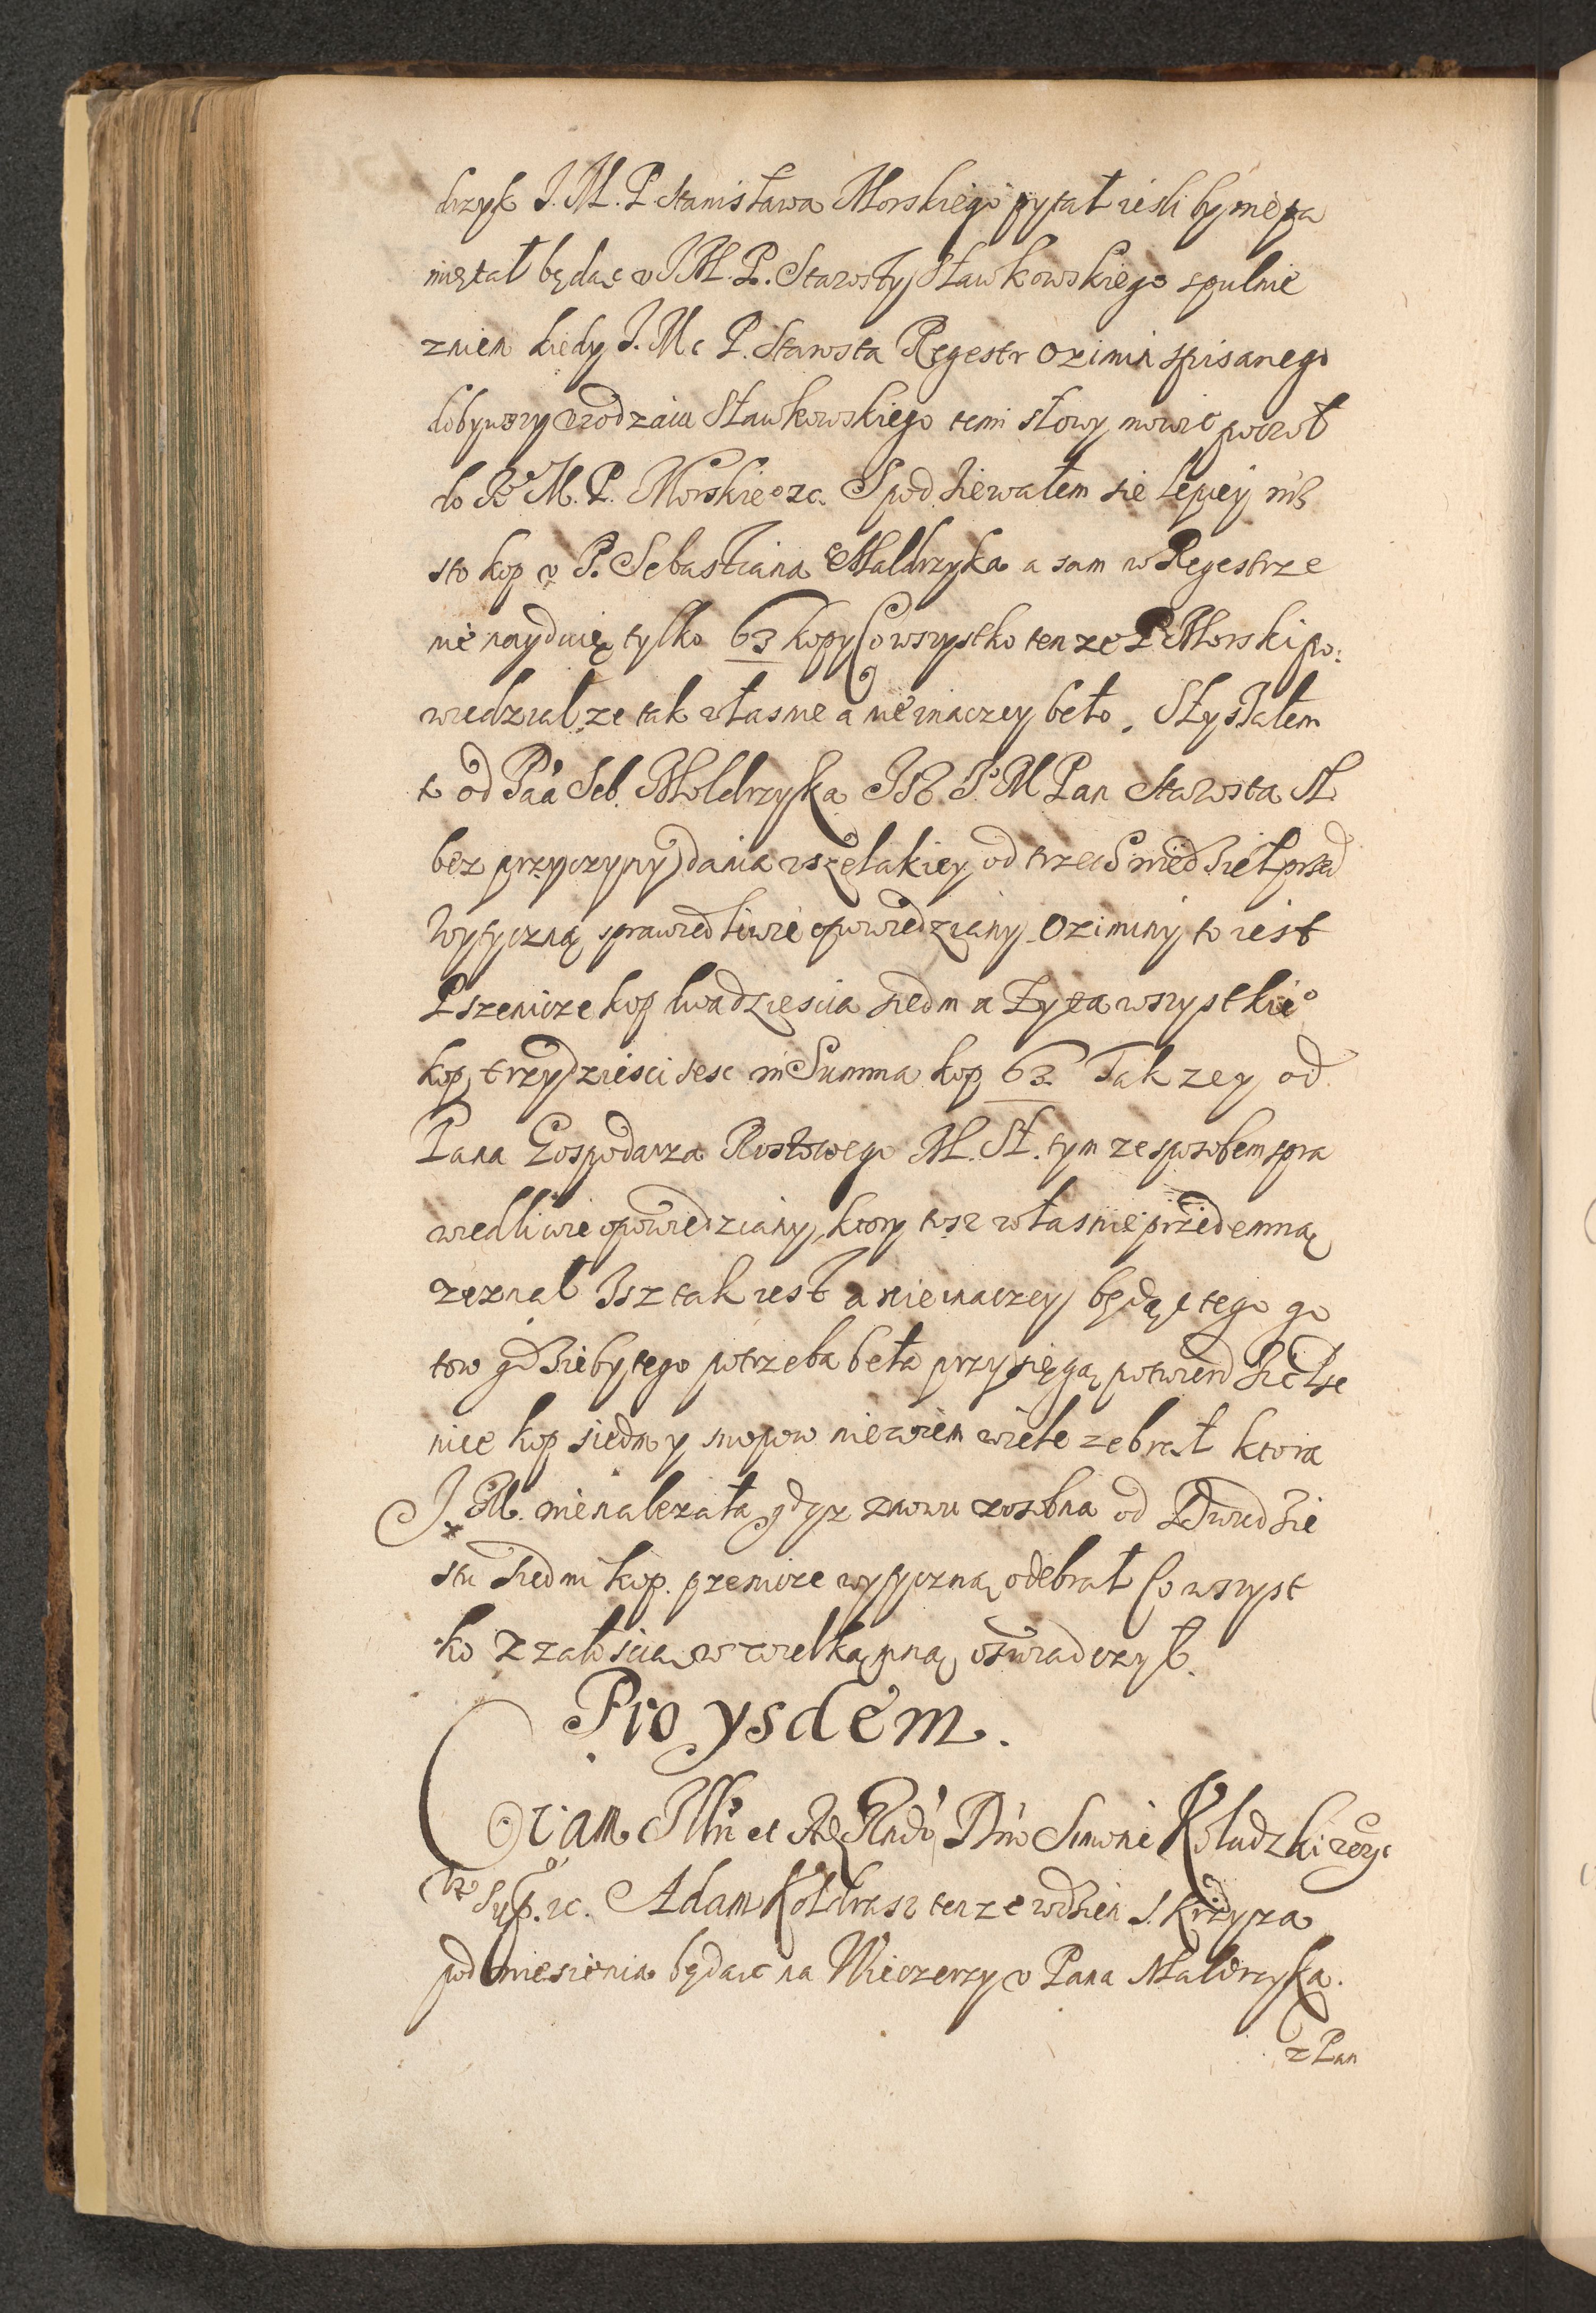 drzyk J. M. P. Stanisława Morskiego pytał iesli by niepa
miętał będąc v JM. P. Starosty Sławkowskiego spulnie
zniem kiedy J. Mc P. Starosta Regestr Ozimin spisanego
dobywszy vrodzaiu Sławkowskiego temi słowy mowic poczoł
do Je° M. P. Morskie° zc. Spodziewałem sie lepiey niż
sto kop v P. Sebastiana Maldrzyka a sam w Regestrze
nie nayduię tylko 63 kopy Co wszystko tenze P Morski po:
wiedział ze tak własnie a nie inaczey beło. Słyszałem
t od Paa Seb. Moldrzyka Jż J° M Pan Starosta Sł.
bez przyczyny dania wszelakiey od trzech niedziel przed
wytyczną sprawiedliwie opowiedziany Oziminy to iest
Pszenicze kop dwadziescia siedm a Zyta wszystkie°
kop trzydziesci sesc in Summa kop 63 Takzey od
Pana Gospodarza Rostowego M. Sł. tym ze sposobem spra
wiedliwie opowiedziany, ktory tesz własnie przedemną
zeznał Isz tak iest a nie inaczey będąc tego go
tow gdzieby tego potrzeba beła przysięgą potwierdzic Psze
nice kop siedm y snopow niewiem wiele zebrał ktora
J. M. nienalezała gdysz znowu zosobna od Dwudzie
stu siedmi kop. pzenicze wytyczną odebrał Co wszyst
ko z załoscia wielką oswiadczył.
Pro ysdem.
Coram Illri et Ad Rndo Dno Simone Koludzki
Sup. zc. Adam Kołdrasz tenze wdzien S. Krzyza
podniesienia będąc na Wieczerzy v Pana Maldrzyka.
z Pan